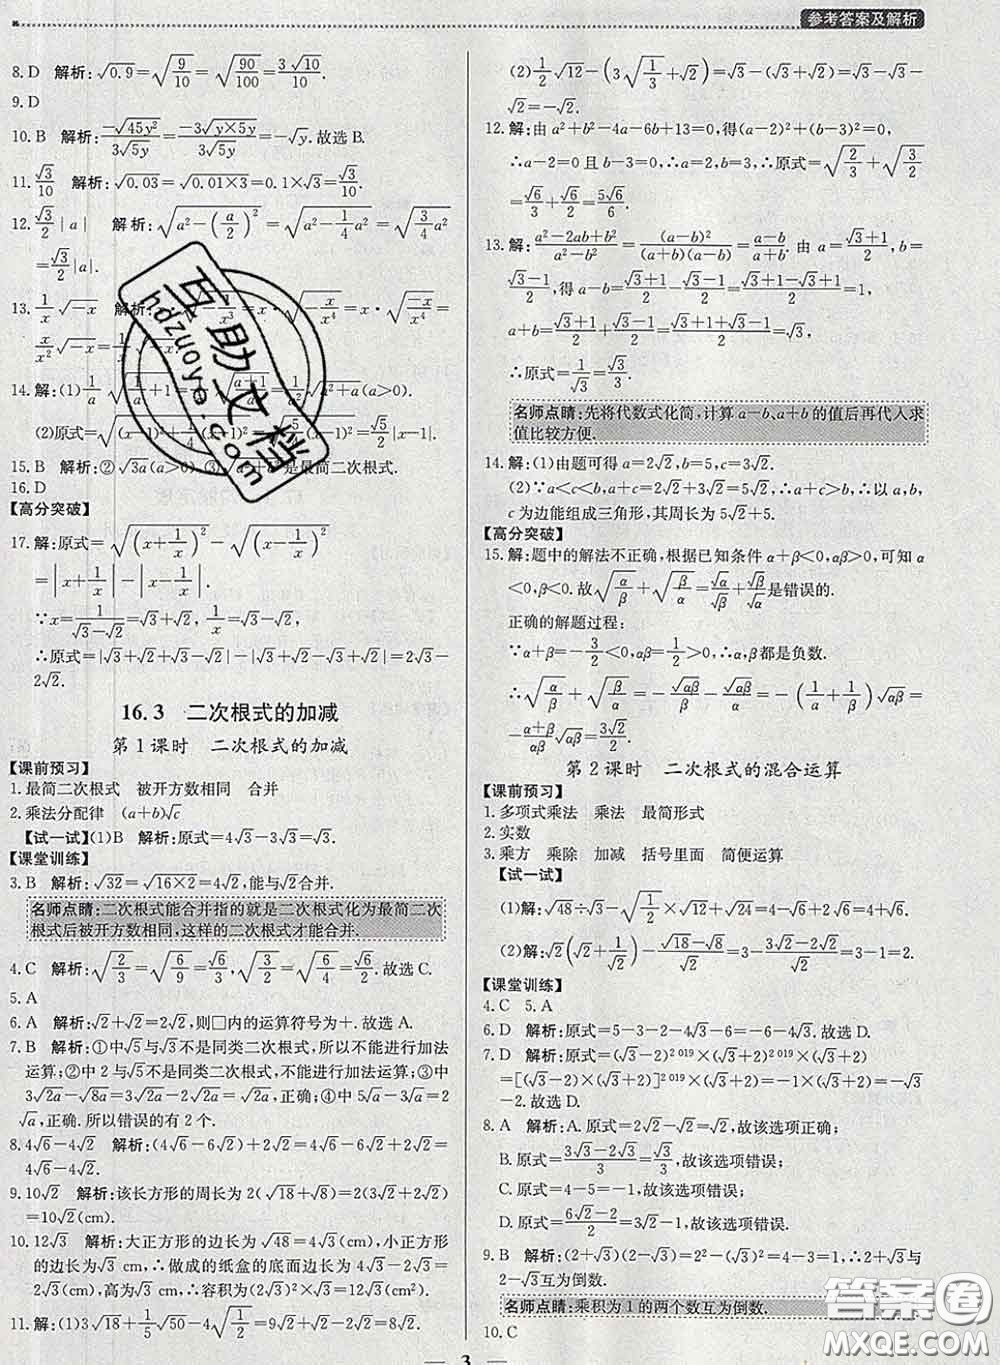 参考答案及解析
8. D 解析:√0.9=√(9/10)=√(90/100)=3√10/10.
9. D
10. B 解析:-√(45y²)/(3√(5y))=-3√(y×5y)/(3√(5y))=-√y.故选 B.
11. √3/10 解析:√0.03=√(0.01×3)=0.1×√3=√3/10.
12. √3/2|a| 解析:√(a²-(a/2)²)=√(a²-1/4a²)=√(3/4a²)
=√3/2|a|.
13. 1/x²√-x
14. 解:(1)
(a>0).
(2)原式=
=√5/2|x-1|.
15. B 解析:②√3a(a>0) ③ 是最简二次根式.
16. D
【高分突破】
17. 解:原式=√((x+1/x)²)-√((x-1/x)²)
=|x+1/x|-|x-1/x|.
∵x=1/(√3-√2)=√3+√2, 1/x=√3-√2,
∴原式=|√3+√2+√3-√2|-|√3+√2-√3+√2|=2√3-
2√2.
16.3 二次根式的加减
第1课时 二次根式的加减
【课前预习】
1. 最简二次根式 被开方数相同 合并
2. 乘法分配律 (a+b)√c
【试一试】(1)B 解析:原式=4√3-3√3=√3.
【课堂训练】
3. B 解析:√32=√(16×2)=4√2,能与√2合并.
名师点睛:二次根式能合并指的就是二次根式化为最简二次
根式后被开方数相同,这样的二次根式才能合并.
4. C 解析:√(2/3)=√(6/9)=√6/3,√(3/2)=√(6/4)=√6/2.故选 C.
5. A
6. A 解析:√2+√2=2√2,则□内的运算符号为+.故选 A.
7. B 解析:①中√5与√3不是同类二次根式,所以不能进行加法
运算;②中 2 与√5不是同类二次根式,不能进行加法运算;③中
3√2a-√8a=3√2a-2√2a=√2a,正确;④中 5√a-3√a=2
√a,正确.所以错误的有 2 个.
8. 4√6-4√2 解析:(4√6-6√2)+2√2=4√6-6√2+2√2=
4√6-4√2.
9. 10√2 解析:该长方形的周长为 2(√18+√8)=2(3√2+2√2)
=10√2(cm).
10. 12√3 解析:大正方形的边长为√48=4√3(cm),小正方形
的边长为√3 cm.∴做成的纸盒的底面边长为 4√3-2√3=
2√3(cm),高为√3 cm.∴容积为(2√3)²×√3=12√3(cm³).
11. 解:(1)3√18+1/5√50-4√(1/2)=9√2+√2-2√2=8√2.
(2)1/2√12-(3√(1/3)+√2)=√3-(√3+√2)=√3-√3-
√2=-√2.
12. 解:由 a²+b²-4a-6b+13=0,得(a-2)²+(b-3)²=0,
∴a-2=0 且 b-3=0,∴a=2,b=3,∴原式=√(2/3)+√(3/2)=
√6/3+√6/2=5√6/6.
13. 解:(a²-2ab+b²)/(a²-b²)=(a-b)²/((a+b)(a-b))=(a-b)/(a+b). 由 a=(√3+1)/2,b=
(√3-1)/2,得 a-b=(√3+1)/2-(√3-1)/2=(√3+1-√3+1)/2=1,
a+b=(√3+1)/2+(√3-1)/2=(√3+1+√3-1)/2=√3,
∴原式=1/√3=√3/3.
名师点睛:先将代数式化简,计算 a-b、a+b 的值后再代入求
值比较方便.
14. 解:(1)由题可得 a=2√2,b=5,c=3√2.
(2)∵a<c<b,a+c=2√2+3√2=5√2,∴a+c>b,∴以 a,b,
c 为边能组成三角形,其周长为 5√2+5.
【高分突破】
15. 解:题中的解法不正确,根据已知条件 α+β<0,αβ>0,可知 α
<0,β<0.故√(α/β)+√(β/α)=√α/√β+√β/√α是错误的.
正确的解题过程:
∵α+β=-3/2<0,αβ=1/2>0,∴α,β都是负数.
∴√(α/β)+√(β/α)=-√(αβ)/β-√(αβ)/α=-(1/α+1/β)√(αβ)=
-(α+β)/(αβ)√(αβ)=3√2/2.
第2课时 二次根式的混合运算
【课前预习】
1. 多项式乘法 乘法 最简形式
2. 实数
3. 乘方 乘除 加减 括号里面 简便运算
【试一试】
(1)解:√48÷√3-√(1/2)×√12+√24=4-√6+2√6=4+√6.
(2)解:√2(√2+1/√2)-(√18-√8)/√2=3-(3√2-2√2)/√2=3-1=2.
【课堂训练】
4. C 5. A
6. D 解析:原式=5-3-2-4√3-6=-6-4√3.故选 D.
7. D 解析:原式=(√3-2)²⁰¹⁹×(√3+2)²⁰¹⁹×(√3+2)
=[(√3-2)×(√3+2)]²⁰¹⁹×(√3+2)=-1×(√3+2)=-√3
-2.故选 D.
8. A 解析:A.原式=2√2-√2=√2,故该选项正确;
B. 原式=(3√3-2√3)/3=√3/3,故该选项错误;
C. 原式=4-5=-1,故该选项错误;
D. 原式=(6√2-2)/2=3√2-1,故该选项错误.
9. B 解析:(2+√3)(2-√3)=2²-(√3)²=4-3=1,∴2+√3与
2-√3互为倒数.
名师点睛:乘积为 1 的两个数互为倒数.
10. C
3
互助文档
hdzuoye.com
答案圈
MXQE.COM